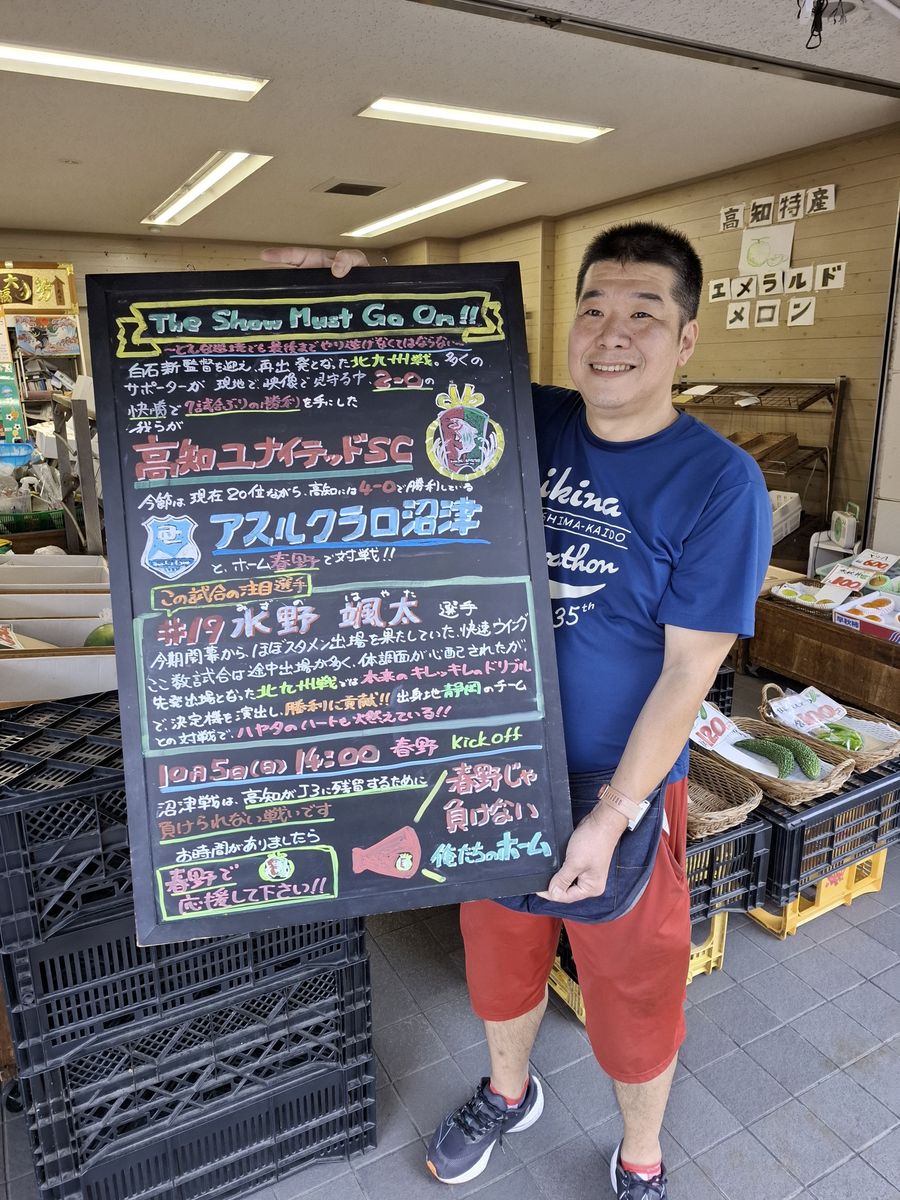 The Show Must Go On!!
～どんな環境でも最後までやり遂げなくてはならない～
白石新監督を迎え、再出発となった北九州戦。多くの
サポーターが現地で、映像で見守る中2-0の
快勝で7試合ぶりの勝利を手にした
我らが
高知ユナイテッドSC
今節は、現在20位ながら、高知には4-0で勝利している
アスルクラロ沼津
と、ホーム春野で対戦!!
この試合の注目選手
みずの はやた
#19 水野 颯太 選手
今期開幕から、ほぼスタメン出場を果たしていた、快速ウイング
ここ数試合は途中出場が多く、体調面が心配されたが、
先発出場となった北九州戦では本来のキレッキレのドリブル
で、決定機を演出し、勝利に貢献!! 出身地静岡のチーム
との対戦で、ハヤタのハートも燃えている!!
10月5日(日) 14:00 春野 Kick off
沼津戦は、高知がJ3に残留するために
負けられない戦いです
お時間がありましたら
春野で
応援して下さい!!
春野じゃ
負けない
俺たちのホーム
高知特産
エメラルド
メロン
ikina
SHIMA-KAIDO
athon
35th
600
100
120
100